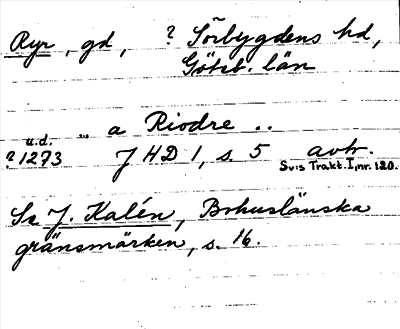 Ryr, gd, ? Sörbygdens hd,
Göteb. län
u.d. .. a Riodre ..
? 1273 J HD 1, s. 5 avtr.
Svis Trakt. I, nr. 120.
Se J. Kalén, Bohuslänska
gränsmärken, s. 16.